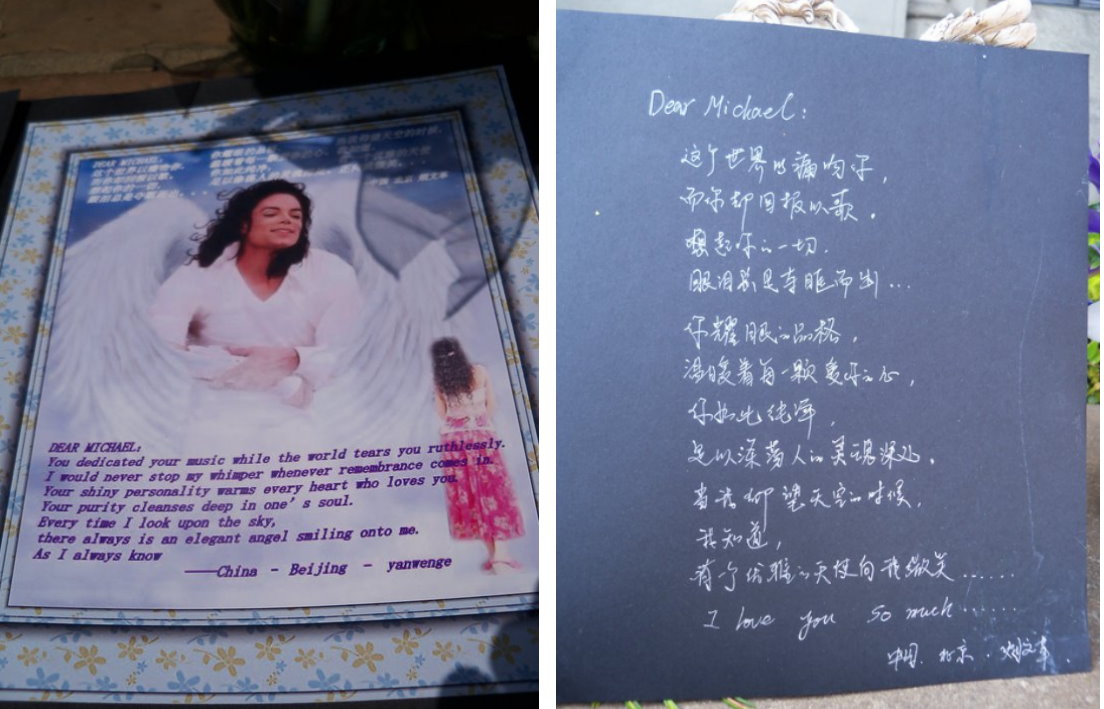 DEAR MICHAEL:
DEAR MICHAEL:
You dedicated your music while the world tears you ruthlessly.
I would never stop my whimper whenever remembrance comes in.
Your shiny personality warms every heart who loves you
Your purity cleanses deep in one's soul.
Every time I look upon the sky,
there always is an elegant angel smiling onto me.
As I always know
——China - Beijing - yanwenge
Dear Michael:
这个世界以痛吻你，
而你却回报以歌。
想起你的一切，
眼泪总是夺眶而出...
你耀眼的品格，
温暖着每一颗爱你的心，
你如此
足以涤荡人的灵魂深处。
当我仰望天空的时候，
我知道，
有个优雅的天使向我微笑......
I love you so much......
中国. 北京.